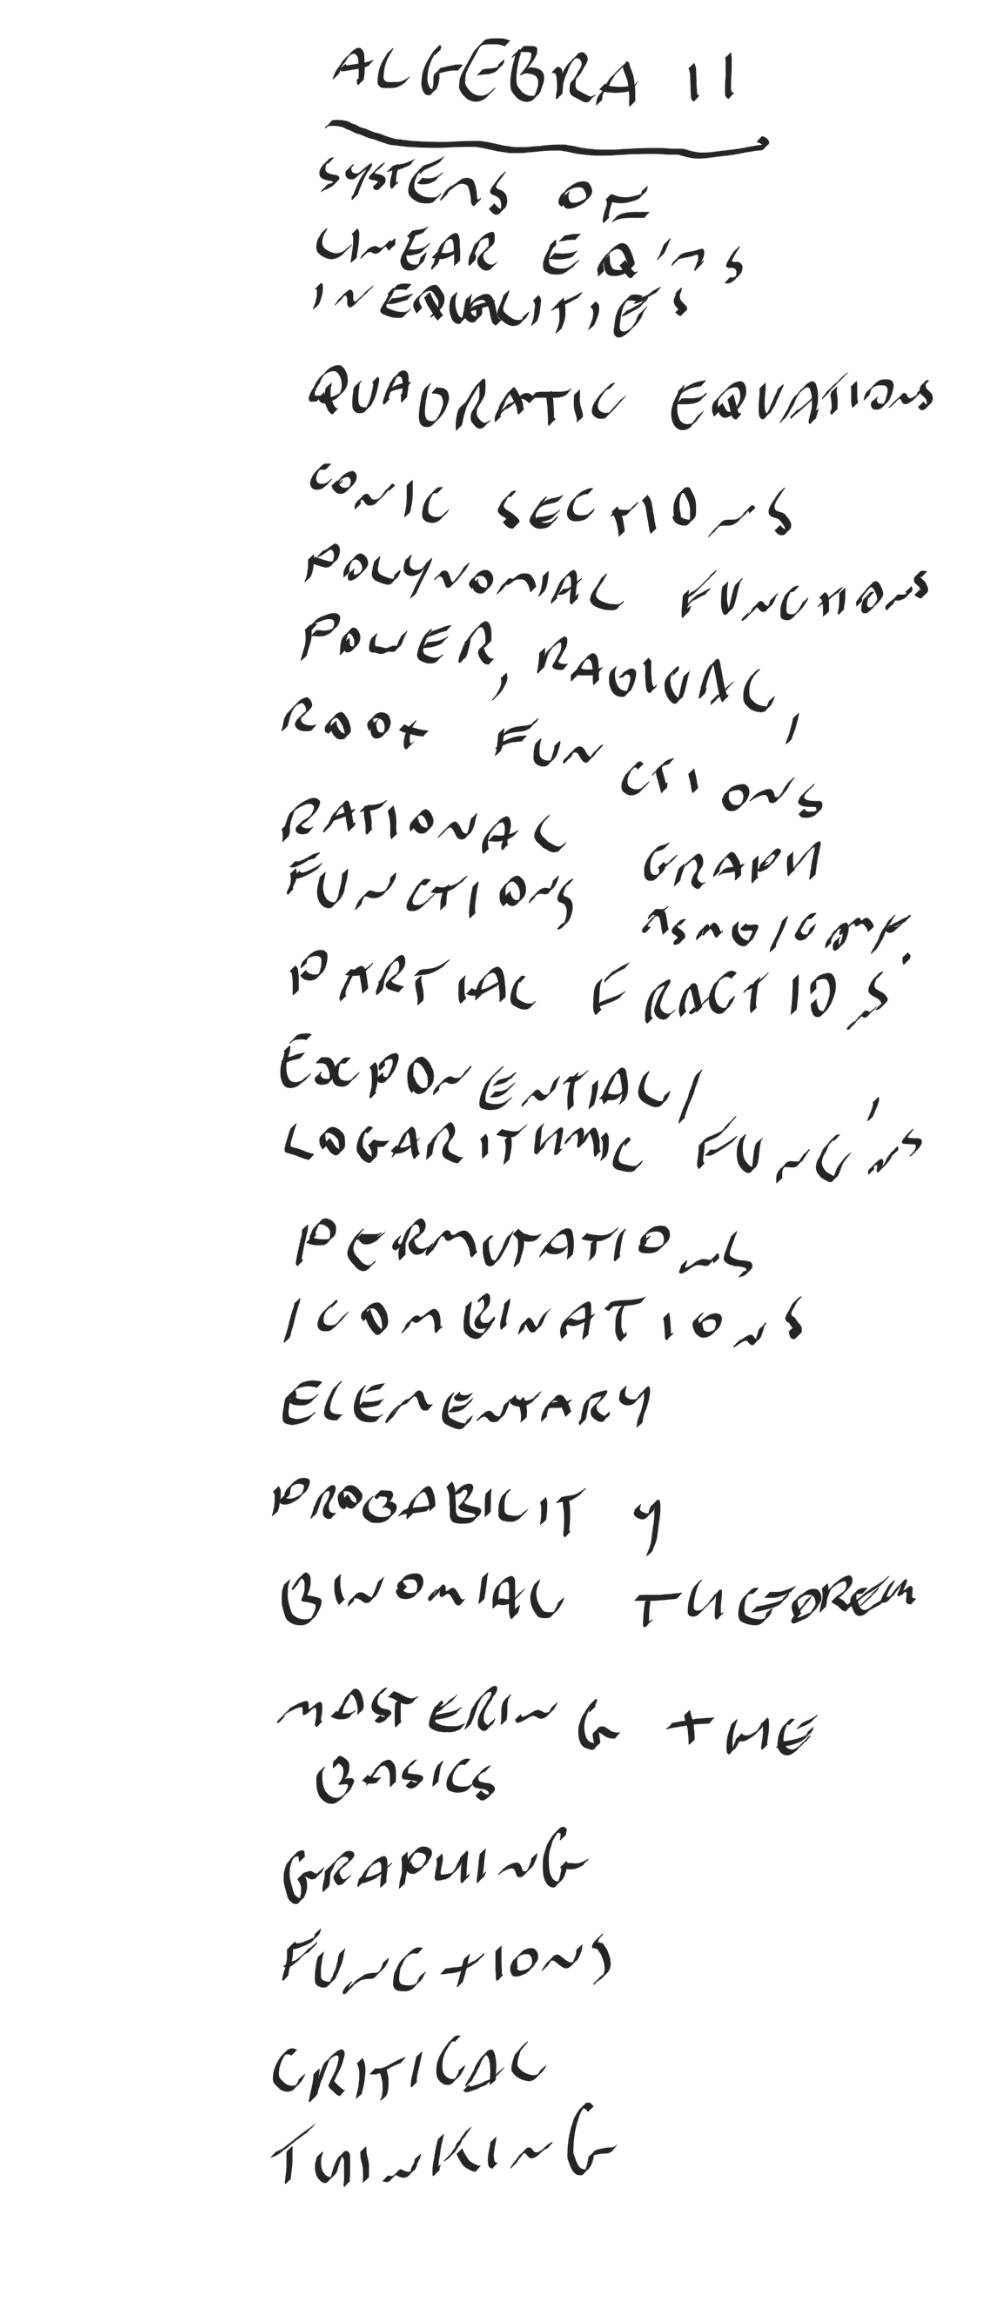 ALGEBRA II
SYSTEMS OF
LINEAR EQ'NS
INEQUALITIES
QUADRATIC EQUATIONS
CONIC SECTIONS
POLYNOMIAL FUNCTIONS
POWER, RADICAL,
ROOT FUNCTIONS
RATIONAL GRAPH
FUNCTIONS
PARTIAL FRACTIOS
EXPONENTIAL/
LOGARITHMIC FUNC'NS
PERMUTATIONS
/COMBINATIONS
ELEMENTARY
PROBABILITY
BINOMIAL THEOREM
MASTERING THE
BASICS
GRAPHING
FUNCTIONS
CRITICAL
THINKING